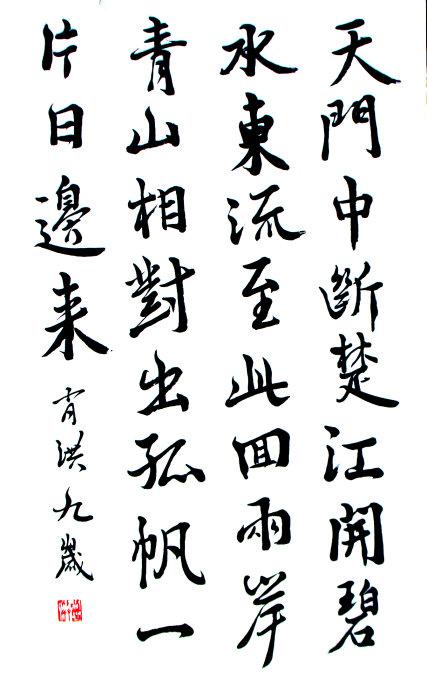 天門中斷楚江開碧
水東流至此回兩岸
青山相對出孤帆一
片日邊来
肖洪九歲